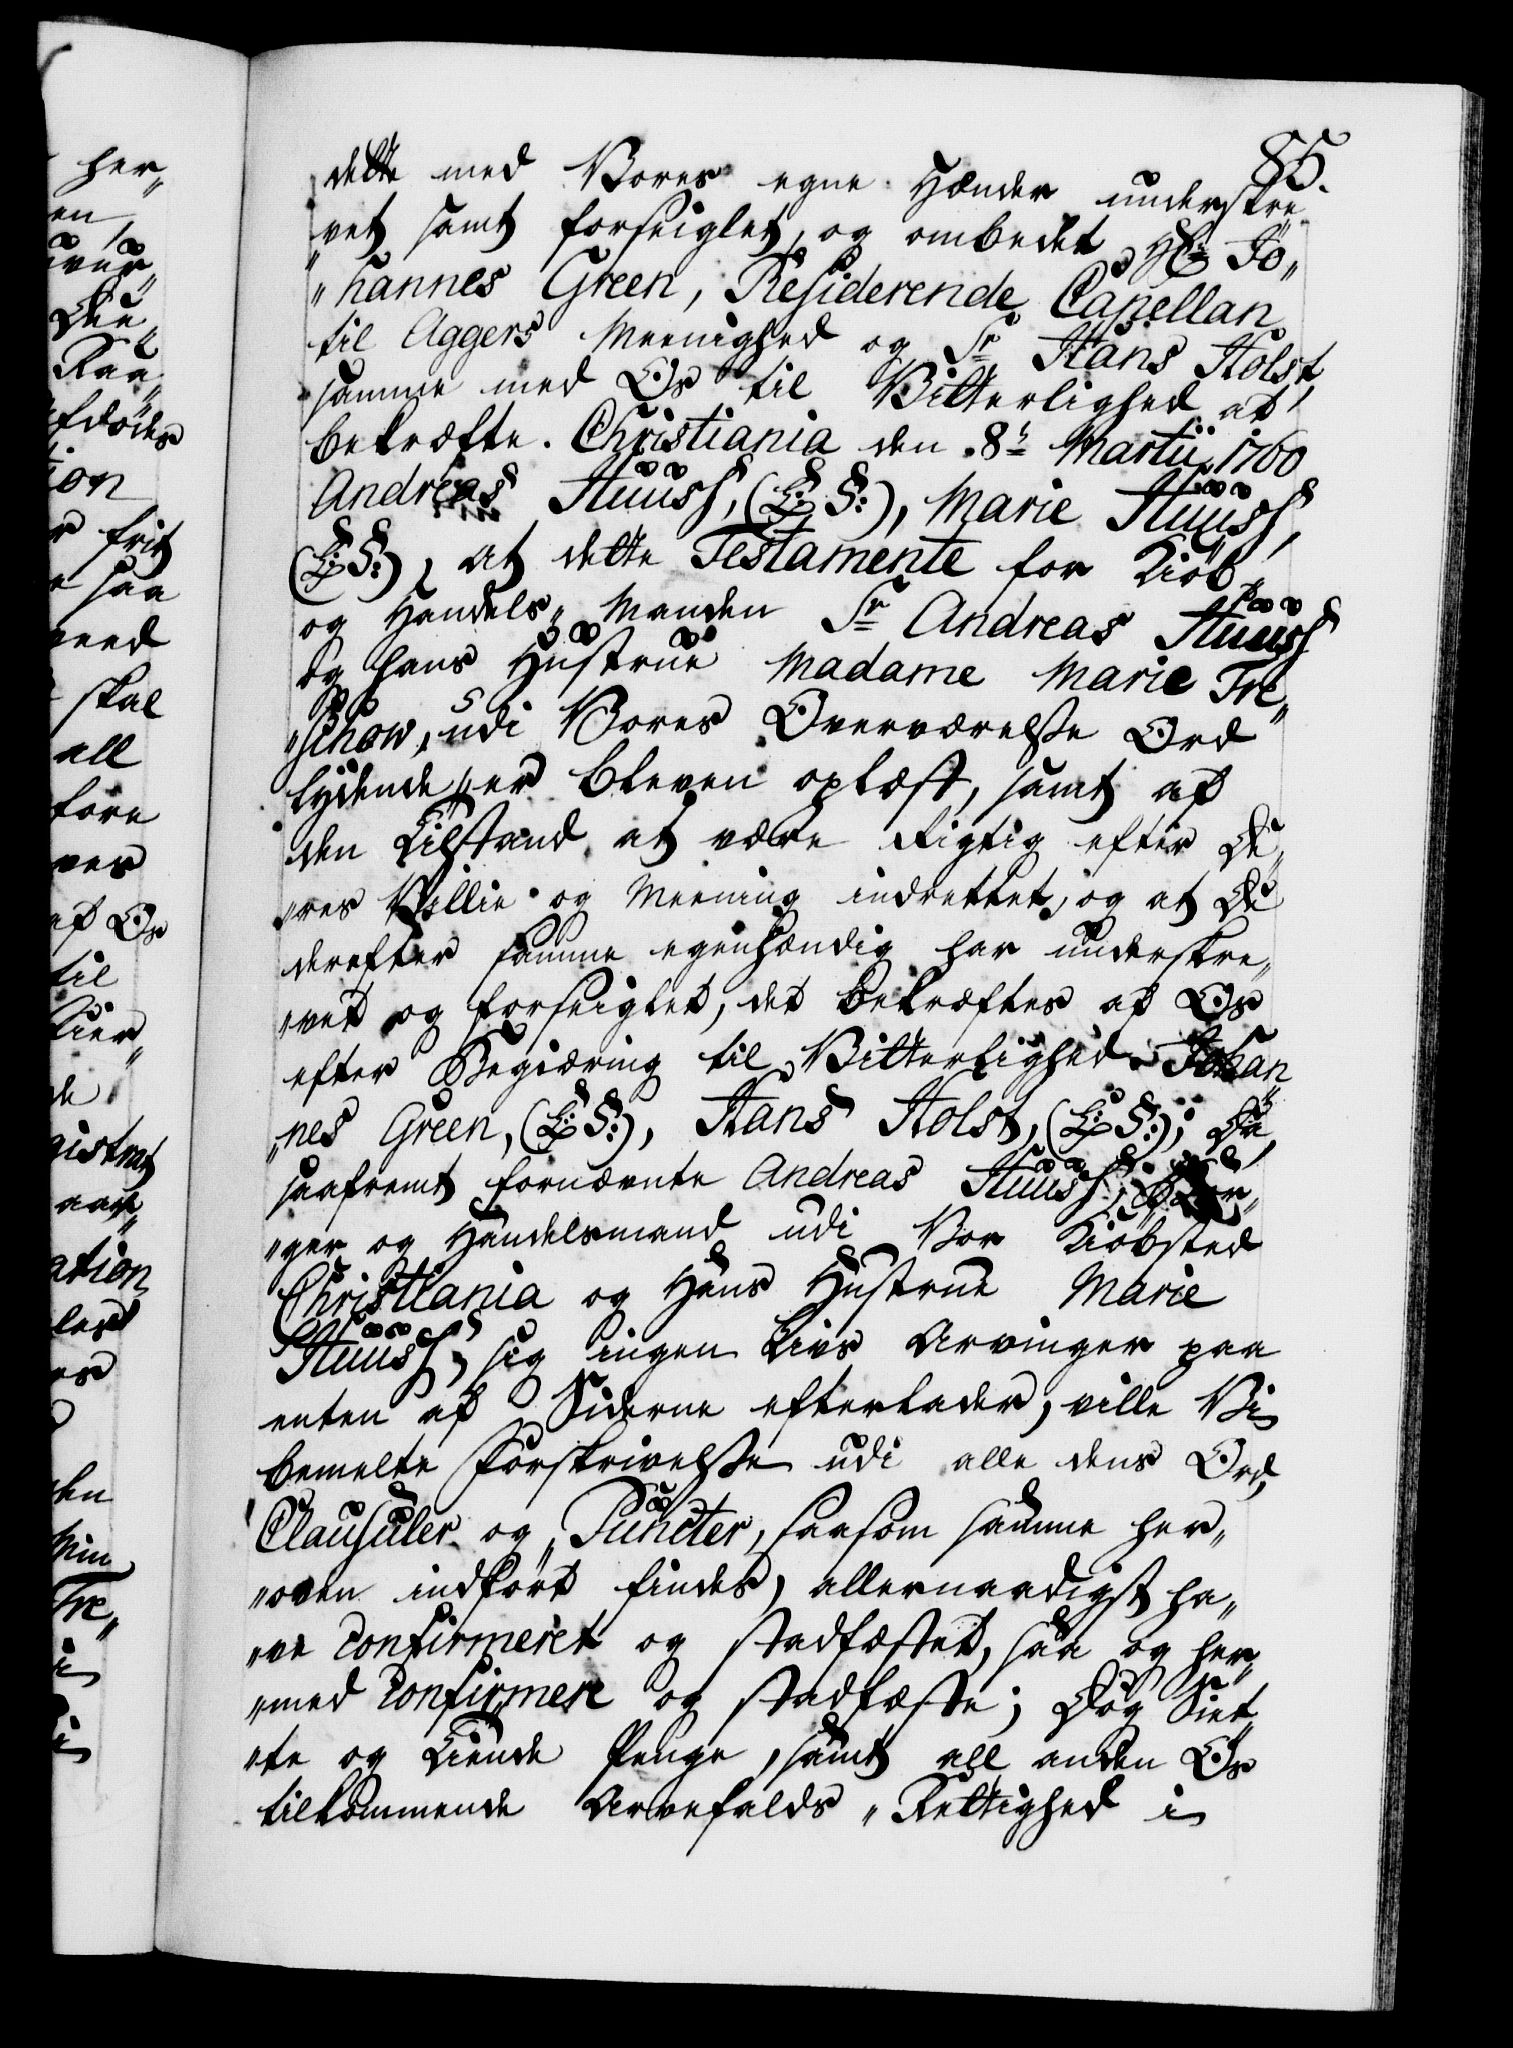 85.
dette med Vores egne Hænder underskre„
„vet samt forseiglet, og ombedet Hr: Jo„
„hannes Green, Residerende Capellan
til Aggers Meenighed og Sr Hans Holst,
samme med Os til Vitterlighed at
bekræfte. Christiania den 8de Martii 1760
Andreas Huus, (L: S:), Marie Huus,
(L: S:), at dette Testamente for Kiøb„
og Handels„Manden Sr Andreas Huus
og hans Hustrue Madame Marie Tre„
„schow, udi Vores Overværelse Ord
lydende er bleven oplæst, samt af
dem tilstaaed at være Rigtig efter De„
„res Villie og Meening indrettet, og at De
derefter samme egenhændig har underskre„
„vet og forseiglet, det bekræftes af Os
efter Begiæring til Vitterlighed. Johan„
„nes Green, (L: S:), Hans Holst, (L: S:); Da,
saafremt fornævnte Andreas Huus, Bor„
„ger og Handelsmand udi Vor Kiøbsted
Christiania og Hans Hustrue Marie
Huus, sig ingen Livs Arvinger paa
enten af Siderne efterlader, ville Vi
bemelte Forskrivelse udi alle dens Ord,
Clausuler og Puncter, saasom samme her„
„oven indført findes, allernaadigst ha„
„ve confirmeret og stadfæstet, saa og her„
„med confirmere og stadfæste; Dog Siet„
„te og Tiende Penge, samt all anden Os
tilkommende Arvefalds„Rettighed i